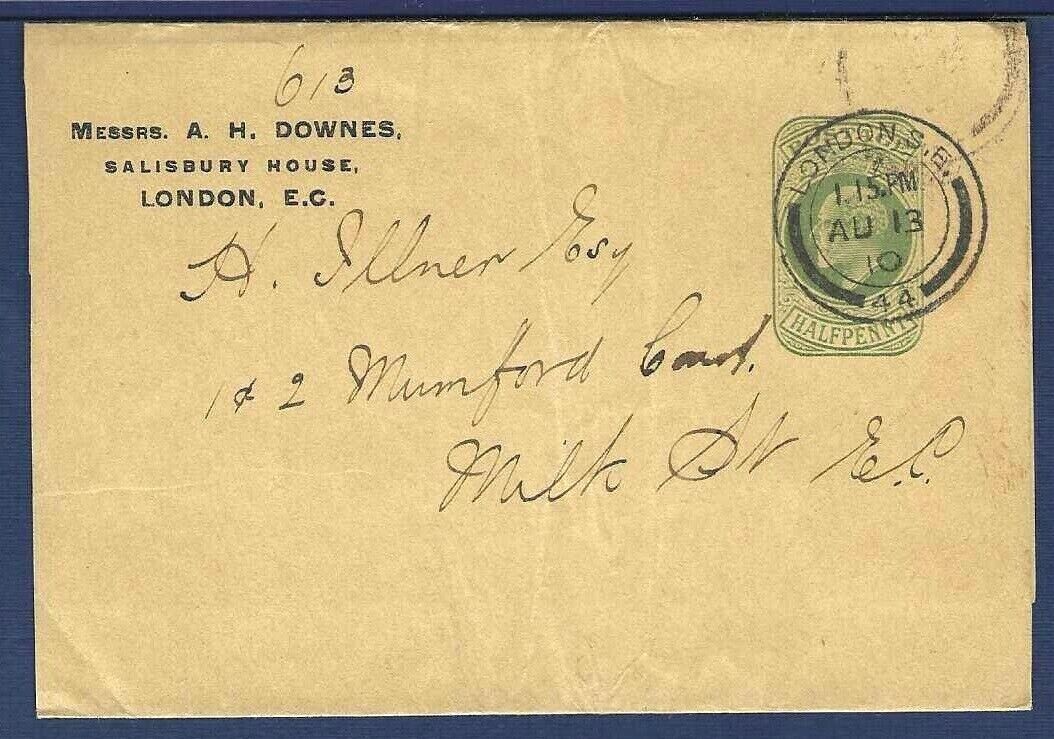 613
MESSRS. A. H. DOWNES,
SALISBURY HOUSE,
LONDON, E.C.
H. Illner Esq
1 & 2 Mumford Court.
Milk St E.C.
LONDON. S.E.
1.15.PM
AU 13
10
44
HALFPENNY